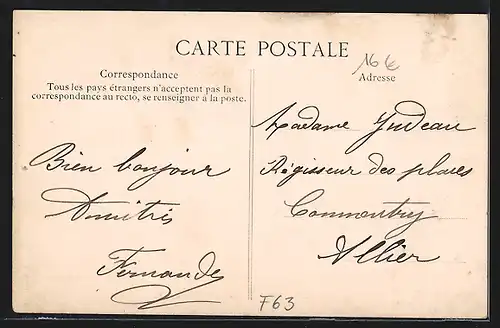 CARTE POSTALE
16€
Correspondance
Tous les pays étrangers n'acceptent pas la
correspondance au recto, se renseigner à la poste.
Bien bonjour
Amitiés
Fernande
Adresse
Madame Judeau
Régisseur des places
Commentry
Allier
F63